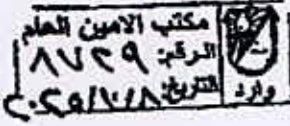 مكتب الامين العام
الرقم: ٨٧٢٩
التاريخ: ٢٠٢٥/١٠/٨
وارد